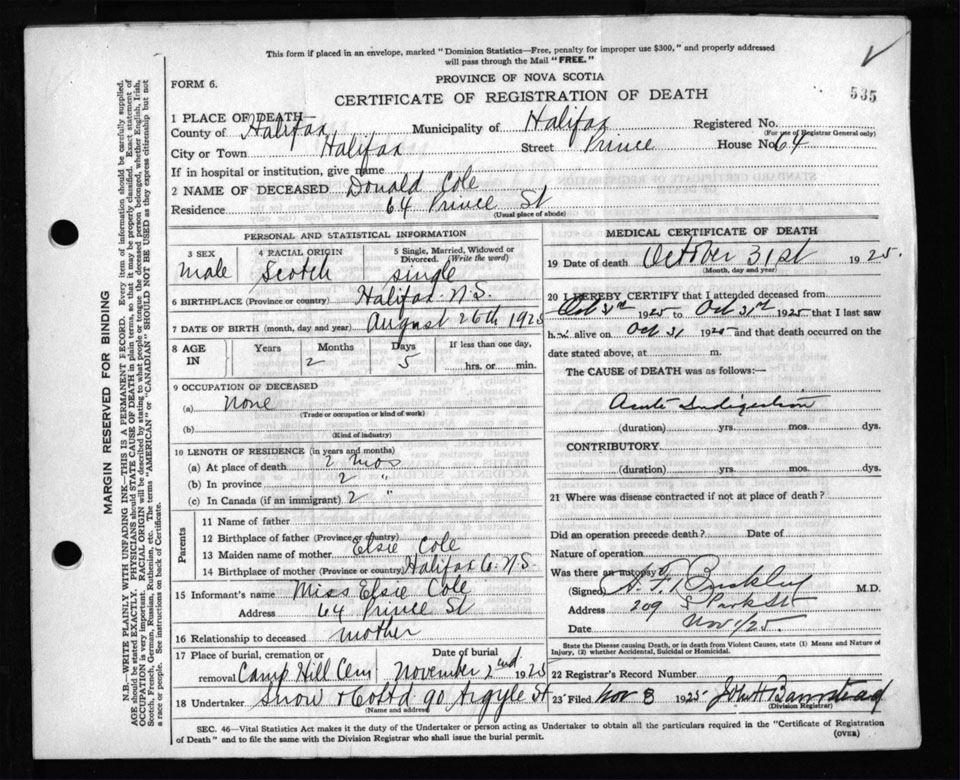 This form if placed in an envelope, marked "Dominion Statistics—Free, penalty for improper use $300," and properly addressed
will pass through the Mail "FREE."
FORM 6.
PROVINCE OF NOVA SCOTIA
535
CERTIFICATE OF REGISTRATION OF DEATH
1 PLACE OF DEATH
County of Halifax Municipality of Halifax Registered No.
(For use of Registrar General only)
City or Town Halifax Street Prince House No. 64
If in hospital or institution, give name
2 NAME OF DECEASED Donald Cole
Residence 64 Prince St
(Usual place of abode)
PERSONAL AND STATISTICAL INFORMATION
3 SEX 4 RACIAL ORIGIN 5 Single, Married, Widowed or Divorced. (Write the word)
Male Scotch single
6 BIRTHPLACE (Province or country) Halifax N.S.
7 DATE OF BIRTH (month, day and year) August 26th 1925
8 AGE IN Years Months Days If less than one day,
2 5 hrs. or min.
9 OCCUPATION OF DECEASED
(a) None
(Trade or occupation or kind of work)
(b)
(Kind of industry)
10 LENGTH OF RESIDENCE (in years and months)
(a) At place of death 2 mos
(b) In province 2 "
(c) In Canada (if an immigrant) 2 "
Parents
11 Name of father
12 Birthplace of father (Province or country)
13 Maiden name of mother Elsie Cole
14 Birthplace of mother (Province or country) Halifax Co. N.S.
15 Informant's name Miss Elsie Cole
Address 64 Prince St
16 Relationship to deceased mother
17 Place of burial, cremation or removal Date of burial
Camp Hill Cem November 2nd 1925
18 Undertaker Snow & Co Ltd 90 Argyle St
(Name and address)
MEDICAL CERTIFICATE OF DEATH
19 Date of death October 31st 1925.
(Month, day and year)
20 I HEREBY CERTIFY that I attended deceased from
Oct 31st 1925 to Oct 31st 1925 that I last saw
h alive on Oct 31 1925 and that death occurred on the
date stated above, at m.
The CAUSE of DEATH was as follows:—
Acute Indigestion
(duration) yrs. mos. dys.
CONTRIBUTORY
(duration) yrs. mos. dys.
21 Where was disease contracted if not at place of death?
Did an operation precede death? Date of
Nature of operation
Was there an autopsy?
(Signed) M.D.
Address 209 S Park St
Date Nov 1/25.
State the Disease causing Death, or in death from Violent Causes, state (1) Means and Nature of
Injury, (2) whether Accidental, Suicidal or Homicidal.
22 Registrar's Record Number
23 Filed Nov 3 1925 John H Barnstead
(Division Registrar)
SEC. 46—Vital Statistics Act makes it the duty of the Undertaker or person acting as Undertaker to obtain all the particulars required in the "Certificate of Registration
of Death" and to file the same with the Division Registrar who shall issue the burial permit.
(OVER)
MARGIN RESERVED FOR BINDING
N.B.—WRITE PLAINLY WITH UNFADING INK—THIS IS A PERMANENT RECORD. Every item of information should be carefully supplied.
AGE should be stated EXACTLY. PHYSICIANS should STATE CAUSE OF DEATH in plain terms, so that it may be properly classified. Exact statement of
OCCUPATION is very important. RACIAL ORIGIN will be described by stating to what people or tongue the deceased person belonged, whether English, Irish,
Scotch, French, German, Russian, Ruthenian, etc. The terms "AMERICAN" or "CANADIAN" SHOULD NOT BE USED as they express citizenship but not
a race or people. See instructions on back of Certificate.